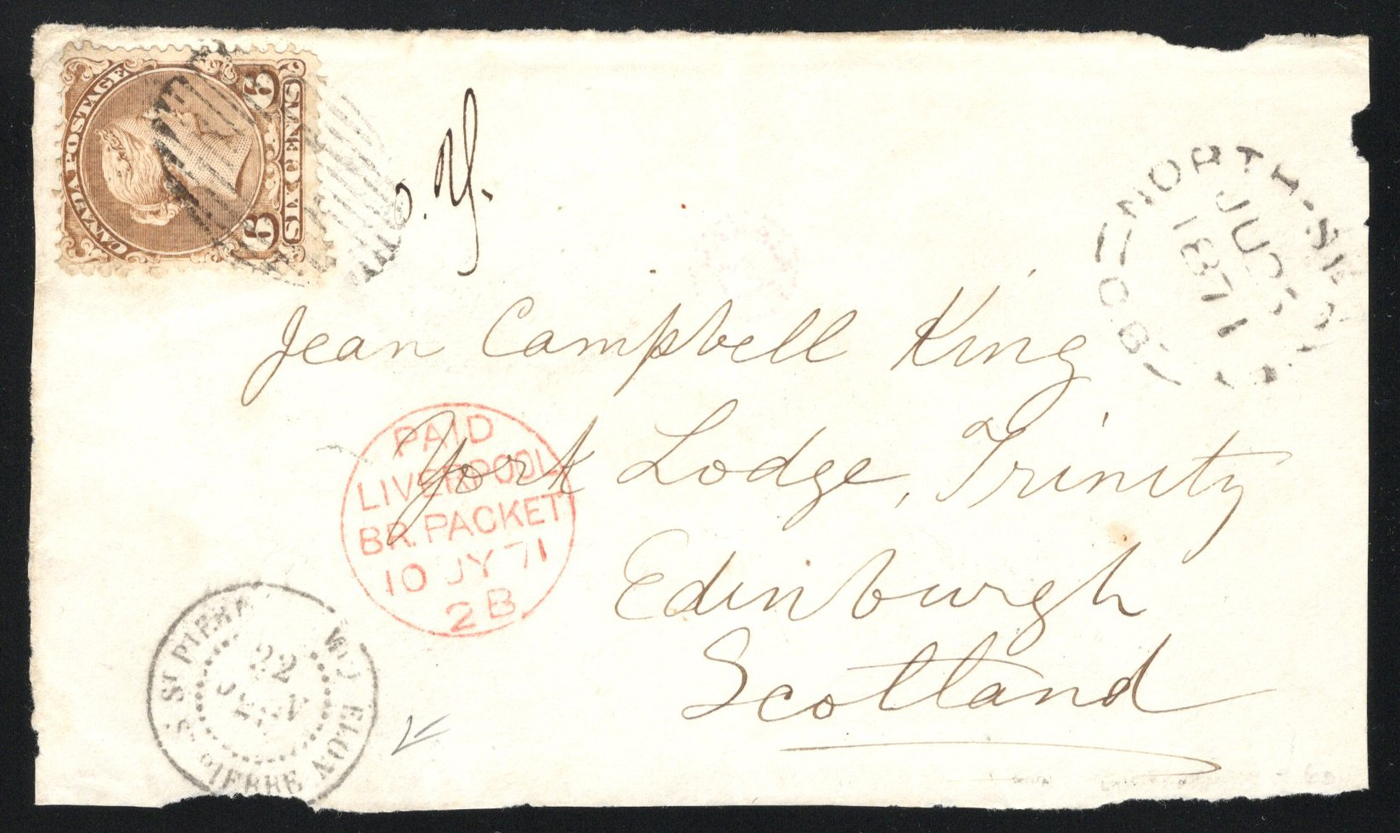 CANADA POSTAGE
SIX CENTS
6 6
NORTH-SYD
JU
1871
C.B
Jean Campbell King
York Lodge, Trinity
Edinburgh
Scotland
PAID
LIVERPOOL
BR. PACKET
10 JY 71
2 B
ST PIERRE
22
PIERRE